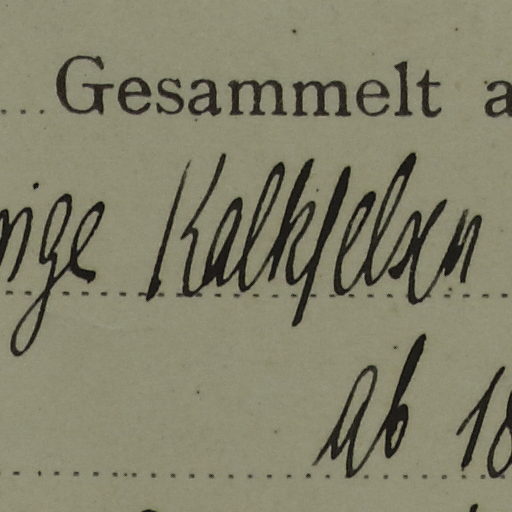 Gesammelt a
nige Kalkfelsen
ab 18